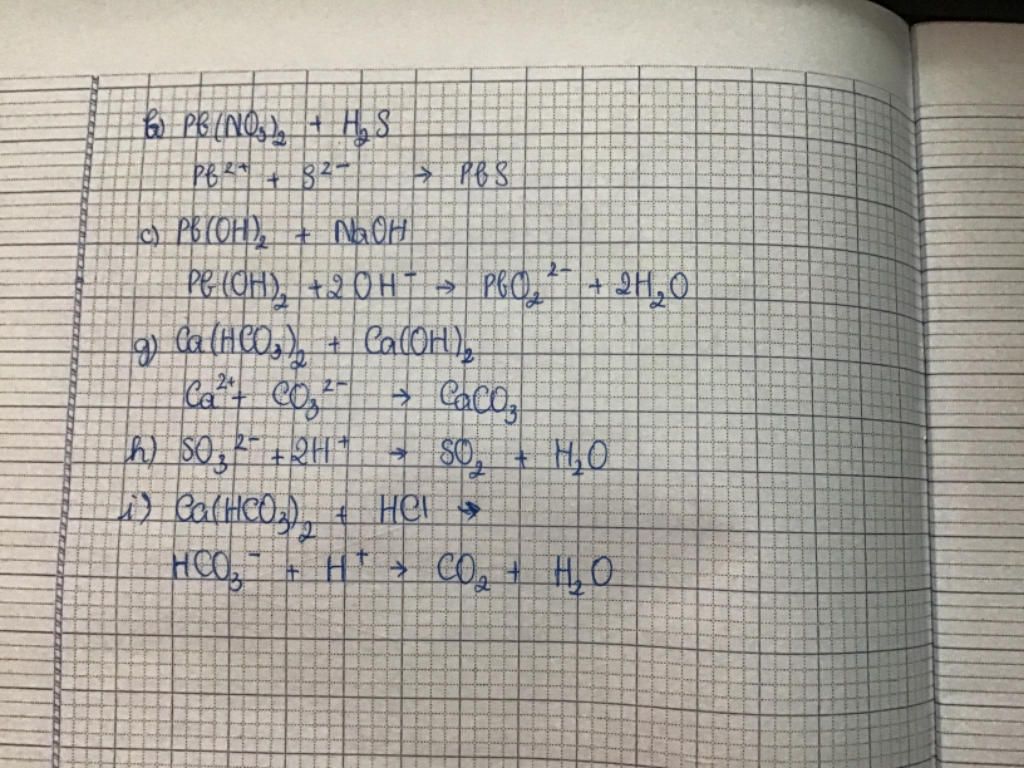 b) Pb(NO₃)₂ + H₂S
Pb²⁺ + S²⁻ → PbS
c) Pb(OH)₂ + NaOH
Pb(OH)₂ + 2OH⁻ → PbO₂²⁻ + 2H₂O
g) Ca(HCO₃)₂ + Ca(OH)₂
Ca²⁺ + CO₃²⁻ → CaCO₃
h) SO₃²⁻ + 2H⁺ → SO₂ + H₂O
i) Ca(HCO₃)₂ + HCl →
HCO₃⁻ + H⁺ → CO₂ + H₂O